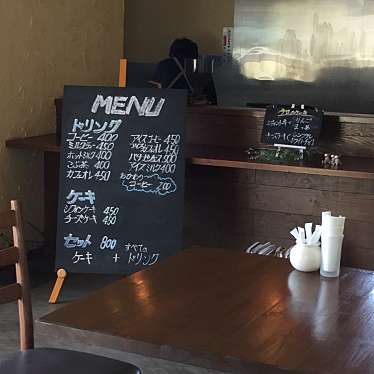 MENU
ドリンク
コーヒー 400
ミルクティー 450
ホットミルク 400
こぶ茶 400
カフェオレ 450
アイスコーヒー 450
アイスカフェオレ 450
バナナジュース 500
アイスミルク 400
おかわり
コーヒー 200
ケーキ
シフォンケーキ 450
チーズケーキ 450
セット 800
ケーキ + すべてのドリンク